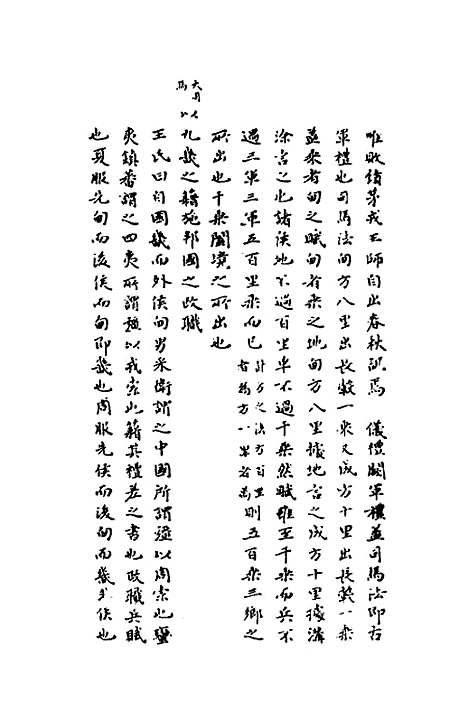 唯敗績茅戎王師自出春秋譏焉　儀禮闕軍禮蓋司馬法即古
軍禮也司馬法甸方八里出長轂一乘又成方十里出長轂一乘
蓋乘者甸之賦甸者乘之地甸方八里據地言之成方十里據溝
涂言之也諸侯地不過百里車不過千乘然賦雖至千乘而兵不
過三軍三軍五百里乘而已計方之法方百里者為方一里者萬則五百乘三鄉之
所出也千乘闔境之所出也
大司馬以九畿之籍施邦國之政職
王氏曰自國畿而外侯甸男采衛謂之中國所謂疆以周索也蠻
夷鎮番謂之四夷所謂疆以戎索也籍其禮差之書也政職兵賦
也夏服先甸而後侯而甸即畿也周服先侯而後甸而畿非侯也